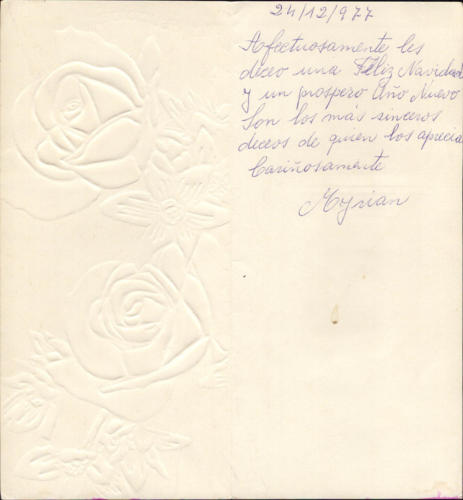 24/12/977
Afectuosamente les
deceo una Feliz Navidad
y un prospero Año Nuevo
Son los más sinceros
deceos de quien los aprecia
Cariñosamente
Myrian